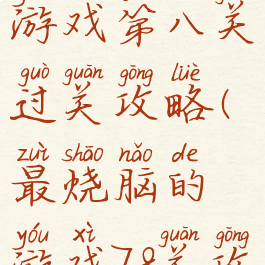 游戏第八关
guò guān gōng lüè
过关攻略(
zuì shāo nǎo de
最烧脑的
yóu xì guān gōng
游戏78关攻